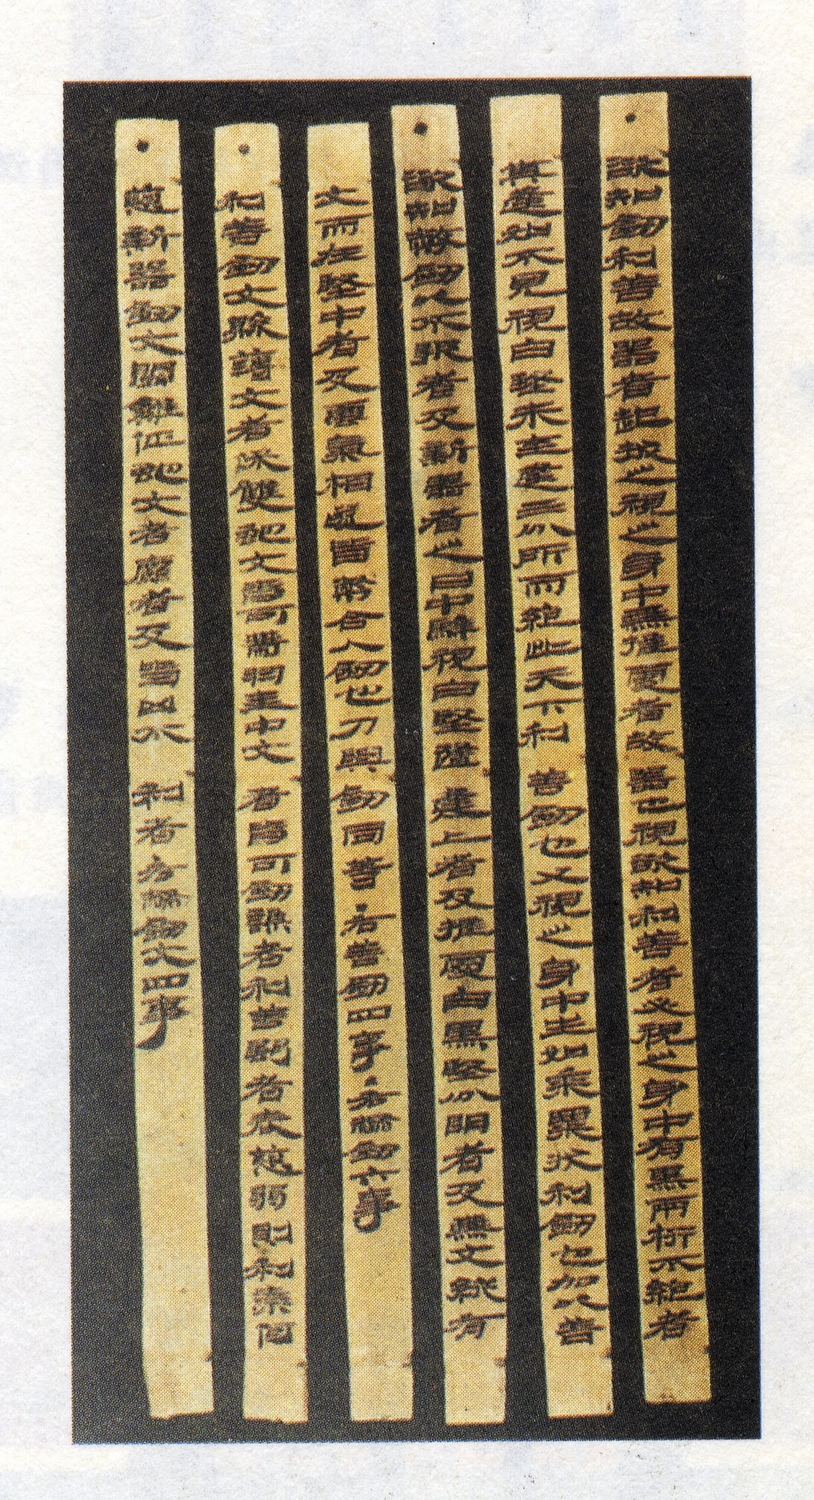 欲知劍利善故器者起拔之視之身中無推處者故器也視欲知利善者必視之身中有黑兩桁不絕者
其逢如不見視白堅未至逢三分所而絕此天下利善劍也又視之身中生如黍粟狀利劍也加以善
欲知幣劍以不報者及新器者之日中騂視白堅隨逢上者及推處白黑堅分明者及無文縱有
文而在堅中者及雲氣相遂皆幣合人劍也刀與劍同等·右善劍四事·右幣劍六事
利善劍文縣薄文者保雙蛇文皆可帶羽圭中文者皆可劍謙者利善強者表恿弱則利奈何
恿新器劍文鬬雞佂蛇文者麤者及皆凶不利者右幣劍文四事